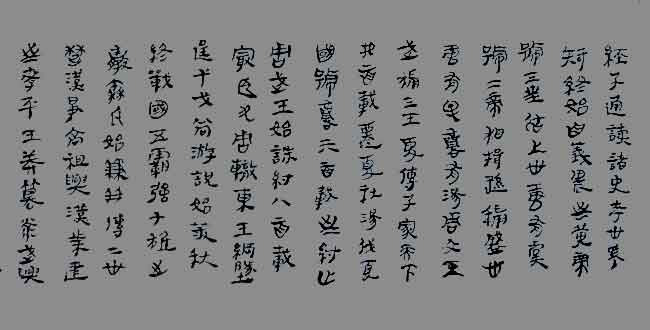 經子通讀諸史考世系
知終始自羲農至黃帝
號三皇居上世唐有虞
號二帝相揖遜稱盛世
夏有禹商有湯周文王
武稱三王夏傳子家天下
四百載遷夏社湯伐夏
國號商六百載至紂亡
周武王始誅紂八百載
最長久周轍東王綱墜
逞干戈尚游說始春秋
終戰國五霸強七雄出
嬴秦氏始兼并傳二世
楚漢爭高祖興漢業建
至孝平王莽篡光武興